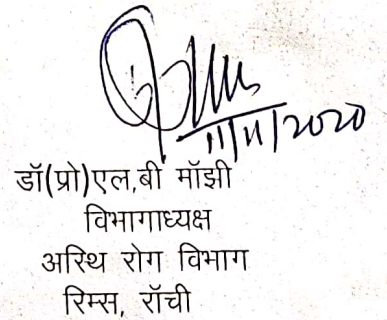 11/11/2020
डॉ(प्रो)एल.बी मॉझी
विभागाध्यक्ष
अस्थि रोग विभाग
रिम्स, रॉची